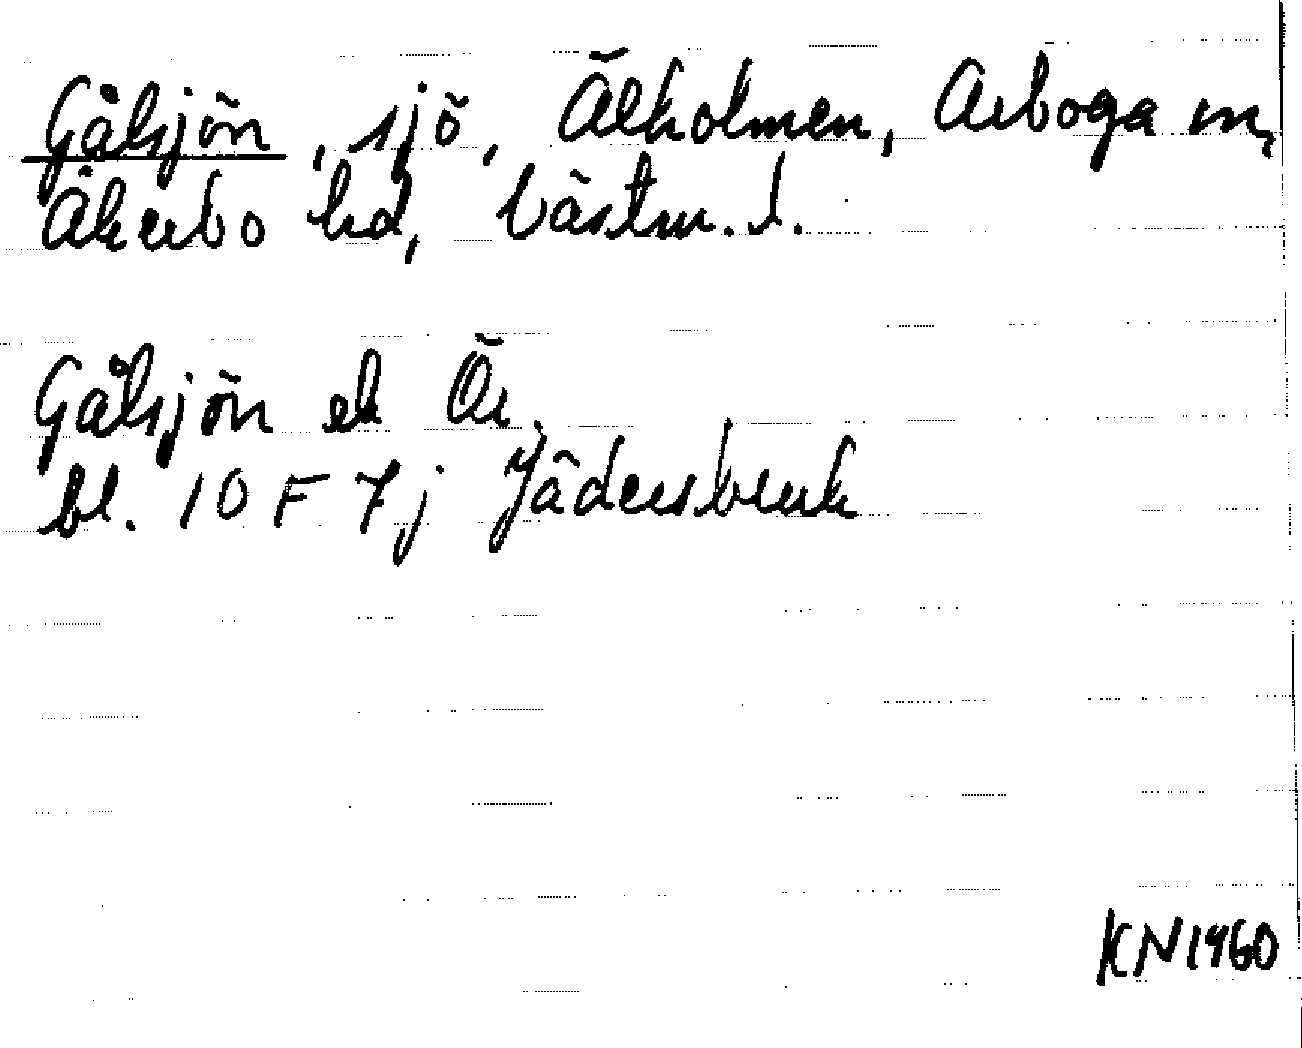 Gålsjön, sjö, Älholmen, Arboga sn,
Åkerbo hd, Västm. l.
Gålsjön ek Ör.
bl. 10 F 7j Jädersbruk
KN1960